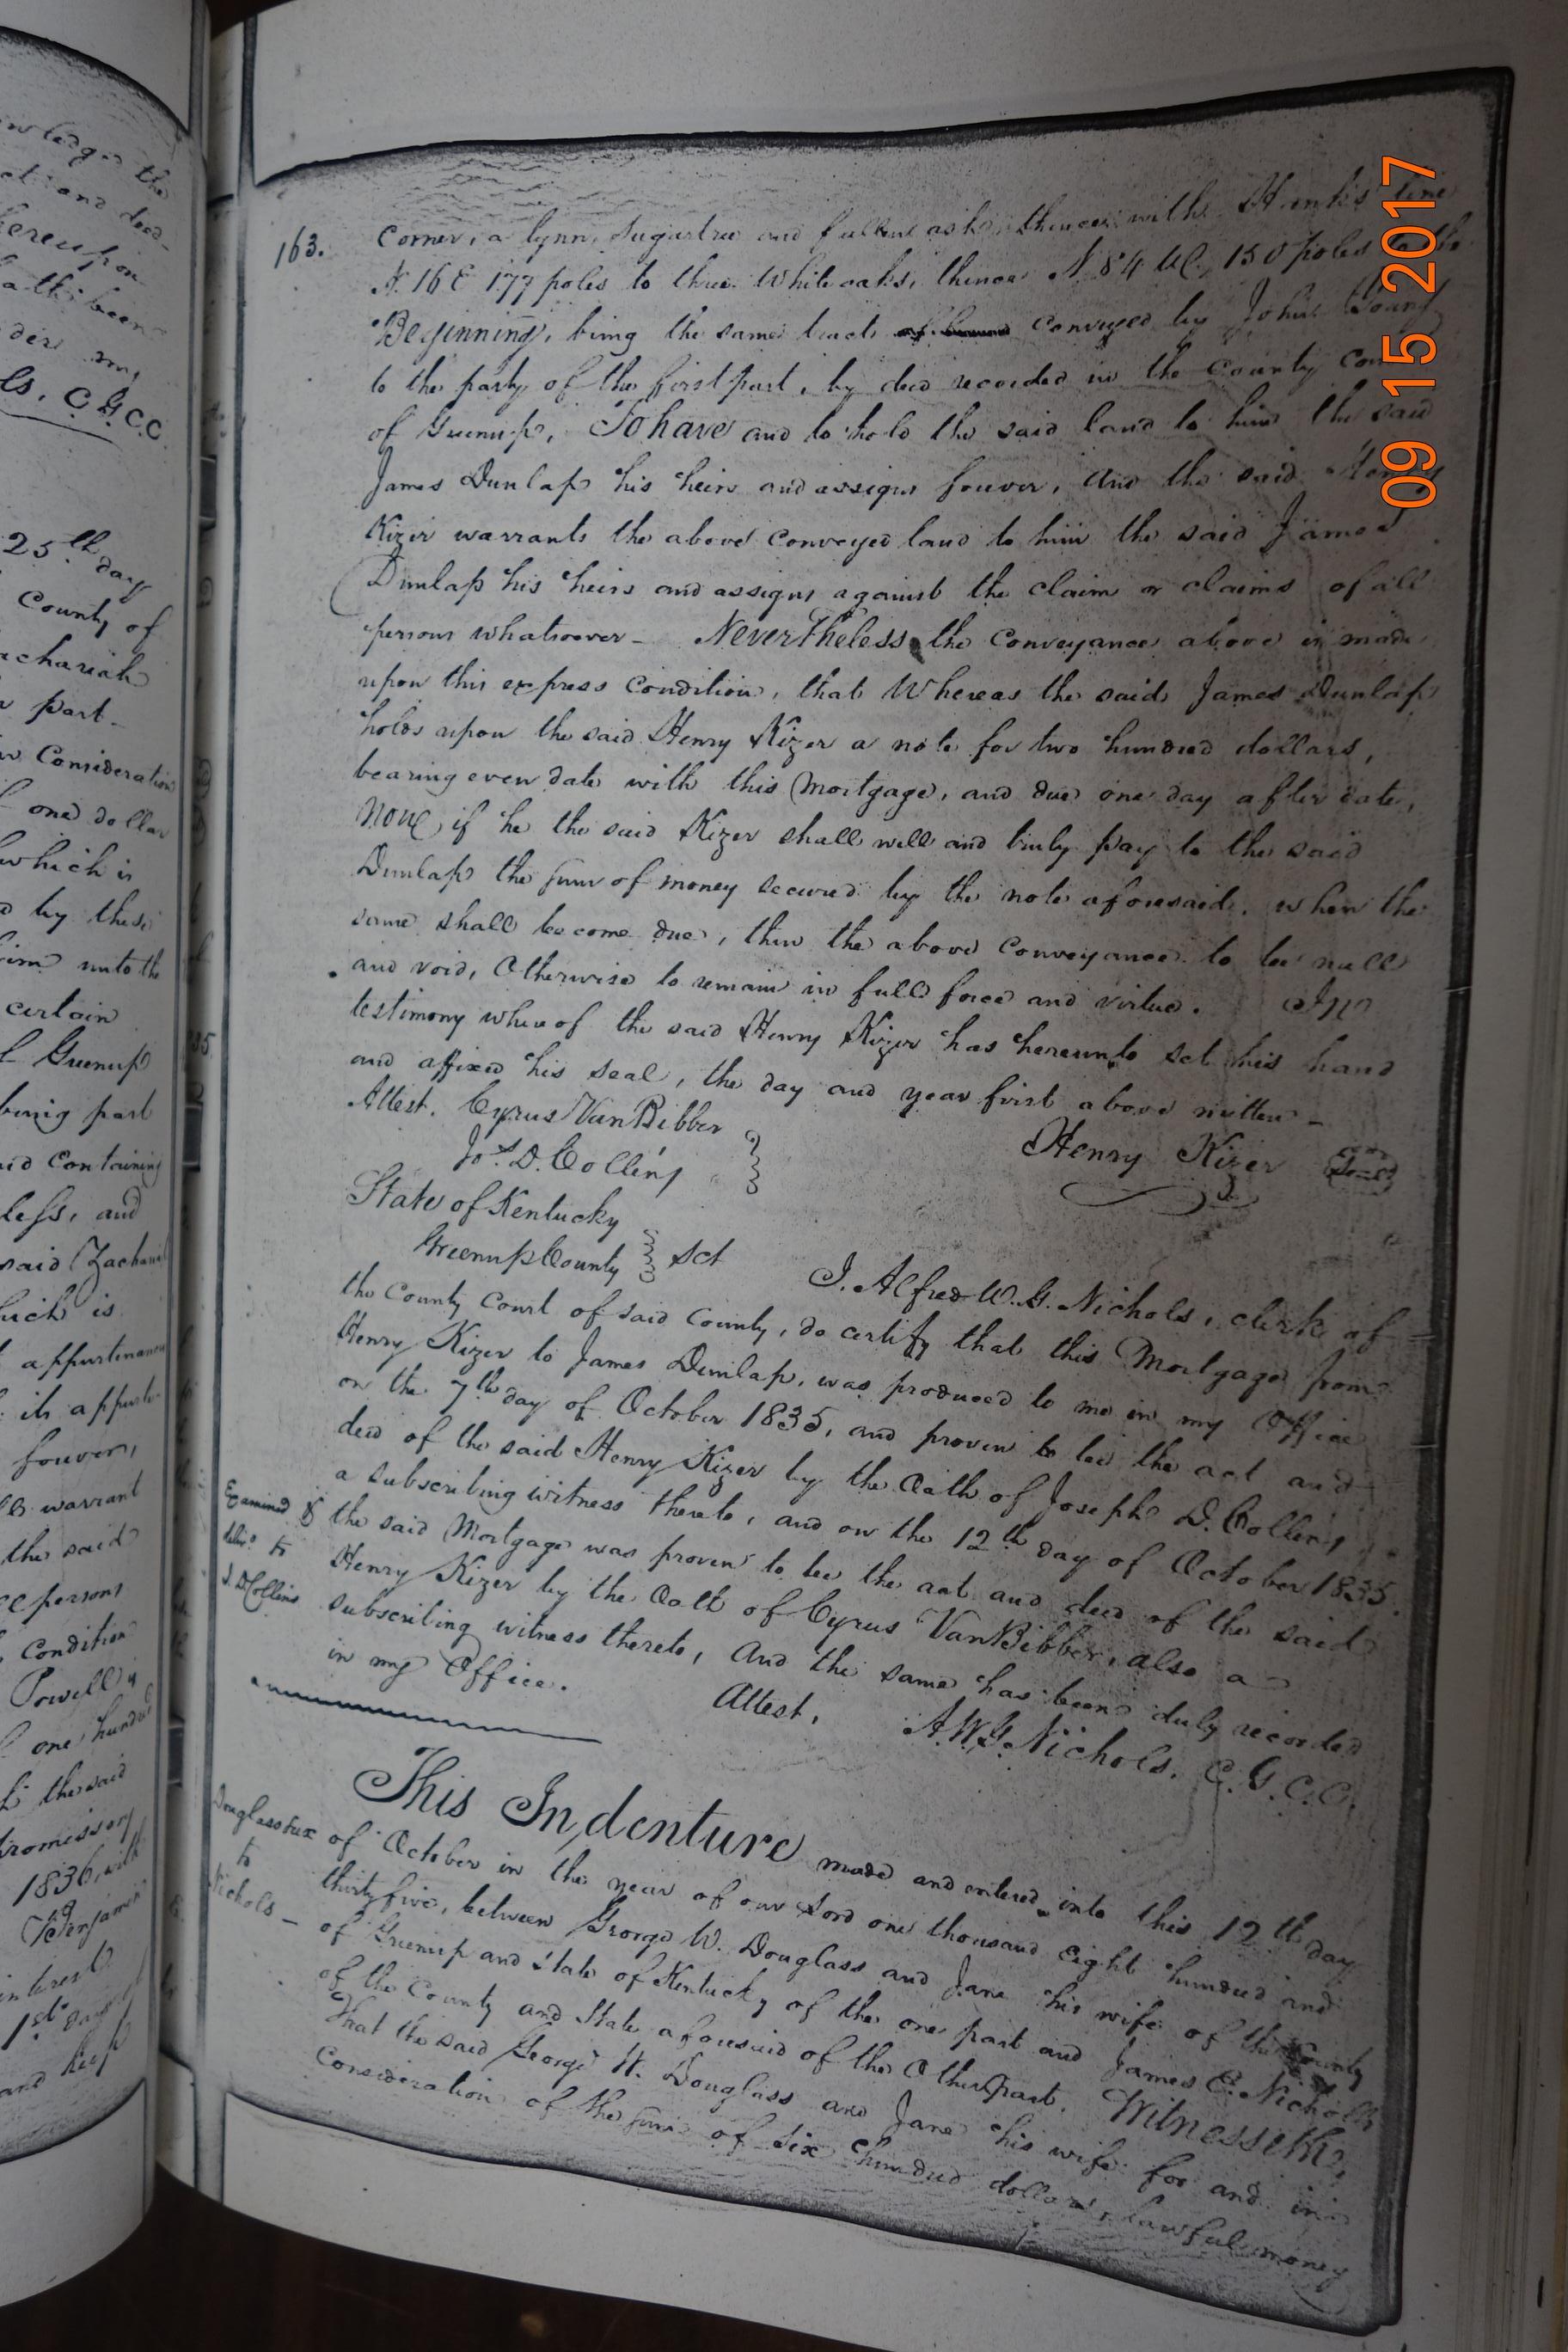 wledge the
act and deed
hereupon
hath been
under my
ls, C.G.C.C.
25th day
County of
achariah
part
Consideration
one dollar
which is
d by these
unto the
certain
Greenup
being part
containing
less, and
said Zachariah
which is
appurtenances
its appurte
forever,
warrant
the said
persons
Condition
Powell is
one hundred
the said
promissory
1836, with
Benjamin
interest
1st day
and keep
163.
corner, a lynn, sugartree and fallen ash, thence with Hunt's line
N. 16 E 177 poles to three White oaks, thence N. 84 W. 150 poles to the
Beginning, being the same tract conveyed by John Young
to the party of the first part, by deed recorded in the County Court
of Greenup, To have and to hold the said land to him the said
James Dunlap his heirs and assigns forever, and the said Henry
Kizer warrants the above conveyed land to him the said James
Dunlap his heirs and assigns against the claim or claims of all
persons whatsoever - Nevertheless the conveyance above is made
upon this express condition, that Whereas the said James Dunlap
holds upon the said Henry Kizer a note for two hundred dollars,
bearing even date with this Mortgage, and due one day after date,
Now, if he the said Kizer shall well and truly pay to the said
Dunlap the sum of money secured by the note aforesaid, when the
same shall become due, then the above conveyance to be null
and void, Otherwise to remain in full force and virtue. In
testimony whereof the said Henry Kizer has hereunto set his hand
and affixed his seal, the day and year first above written -
Attest. Cyrus VanBibber
Jos. D. Collins
Henry Kizer Seal
State of Kentucky
Greenup County Sct
I. Alfred W. G. Nichols, clerk of
the County Court of said County, do certify that this Mortgage from
Henry Kizer to James Dunlap, was produced to me in my Office
on the 7th day of October 1835, and proven to be the act and
deed of the said Henry Kizer by the Oath of Joseph D. Collins,
a subscribing witness thereto, and on the 12th day of October 1835.
the said Mortgage was proven to be the act and deed of the said
Henry Kizer by the Oath of Cyrus VanBibber, also a
subscribing witness thereto, and the same has been duly recorded
in my Office.
Attest,
A.W.G. Nichols. C.G.C.C.
Examined &
deliv.d to
J. D Collins
This Indenture made and entered into this 12th day
of October in the year of our Lord one thousand eight hundred and
thirty five, between George W. Douglass and Jane his wife of the County
of Greenup and State of Kentucky of the one part and James E. Nicholls
of the County and State aforesaid of the Other part. Witnesseth,
That the said George W. Douglass and Jane his wife for and in
consideration of the sum of Six hundred dollars, lawful money
Douglass & ux
to
Nichols -
09 15 2017